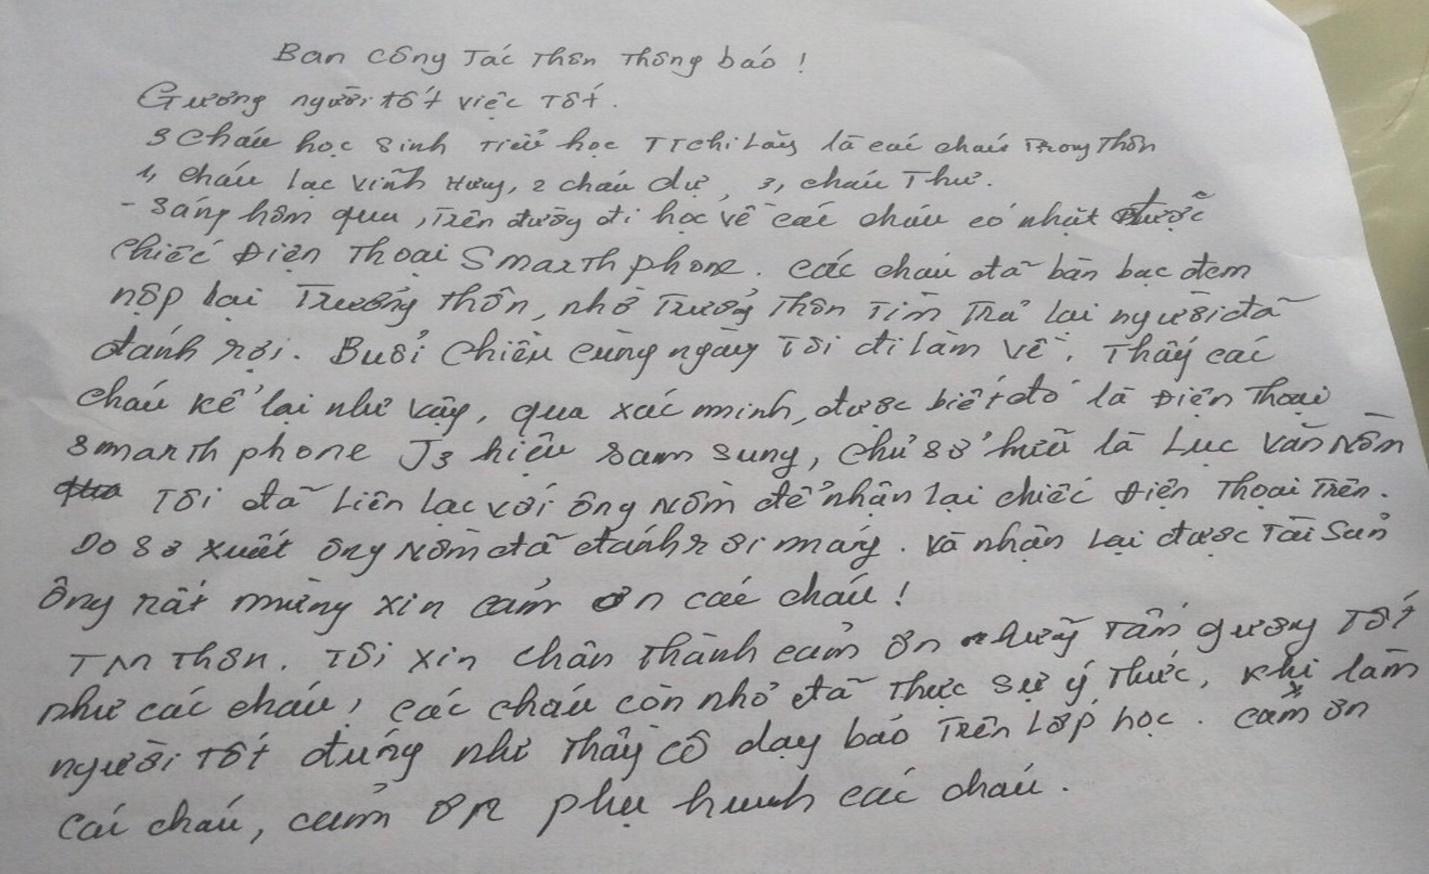 Ban công tác thôn thông báo !
Gương người tốt việc tốt.
3 cháu học sinh tiểu học TT chi Lăng là các cháu trong thôn
1, cháu lạc vĩnh Hưng, 2 cháu dự, 3, cháu Thư.
- sáng hôm qua, trên đường đi học về các cháu có nhặt được
chiếc điện thoại Smarth phone. các cháu đã bàn bạc đem
nộp lại Trưởng thôn, nhờ Trưởng thôn tìm trả lại người đã
đánh rơi. Buổi chiều cùng ngày tôi đi làm về, thấy các
cháu kể lại như vậy, qua xác minh, được biết đó là điện thoại
smarth phone J3 hiệu sam sung, chủ sở hữu là Lục Văn Nồm
tôi đã liên lạc với ông Nồm để nhận lại chiếc điện thoại trên.
Do sơ xuất ông Nồm đã đánh rơi máy. và nhận lại được tài sản
ông rất mừng xin cảm ơn các cháu !
TM thôn. tôi xin chân thành cảm ơn những tấm gương tốt
như các cháu, các cháu còn nhỏ đã thực sự ý thức, khi làm
người tốt đúng như thầy cô dạy bảo trên lớp học. cảm ơn
các cháu, cảm ơn phụ huynh các cháu.